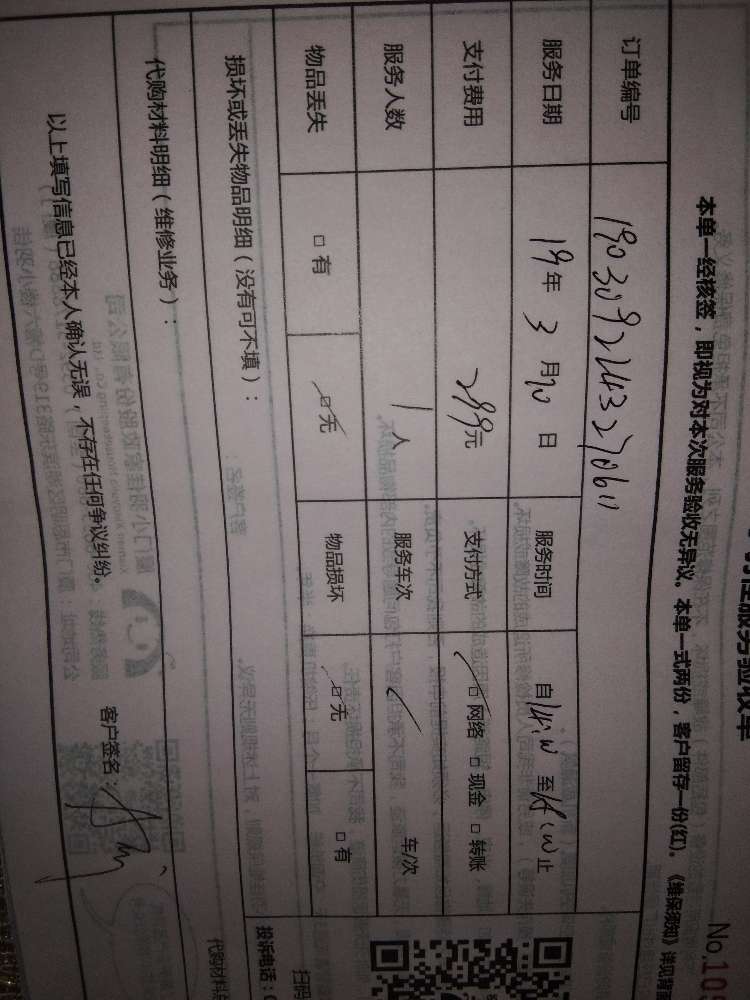 服务验收单
No.10
本单一经核签，即视为对本次服务验收无异议。本单一式两份，客户留存一份(红)。《维保须知》详见背
订单编号 190309224327061
服务日期 19年 3月20日 服务时间 自14:00 至18:00止
支付费用 299元 支付方式 ☑网络 □现金 □转账
服务人数 1人 服务车次 / 车/次
物品丢失 □有 ☑无 物品损坏 ☑无 □有
损坏或丢失物品明细（没有可不填）：
代购材料明细（维修业务）：
代购材料总
以上填写信息已经本人确认无误，不存在任何争议纠纷。
客户签名：
扫码
投诉电话：0